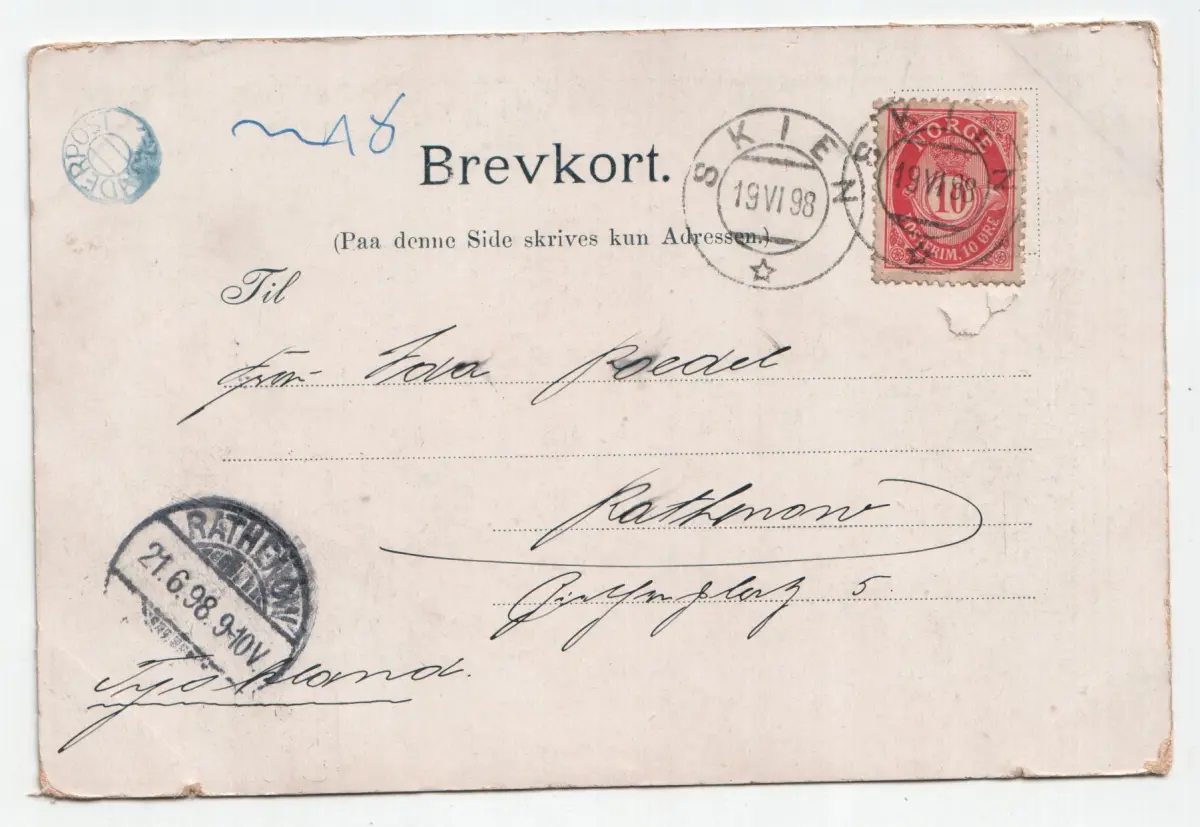 Brevkort.
SKIEN
19 VI 98
SKIEN
19 VI 98
NORGE
10
POSTFRIM. 10 ØRE
(Paa denne Side skrives kun Adressen.)
Til
Frau Ida Roedel
Rathenow
5.
RATHENOW
21.6.98. 9-10V.
Tyskland.